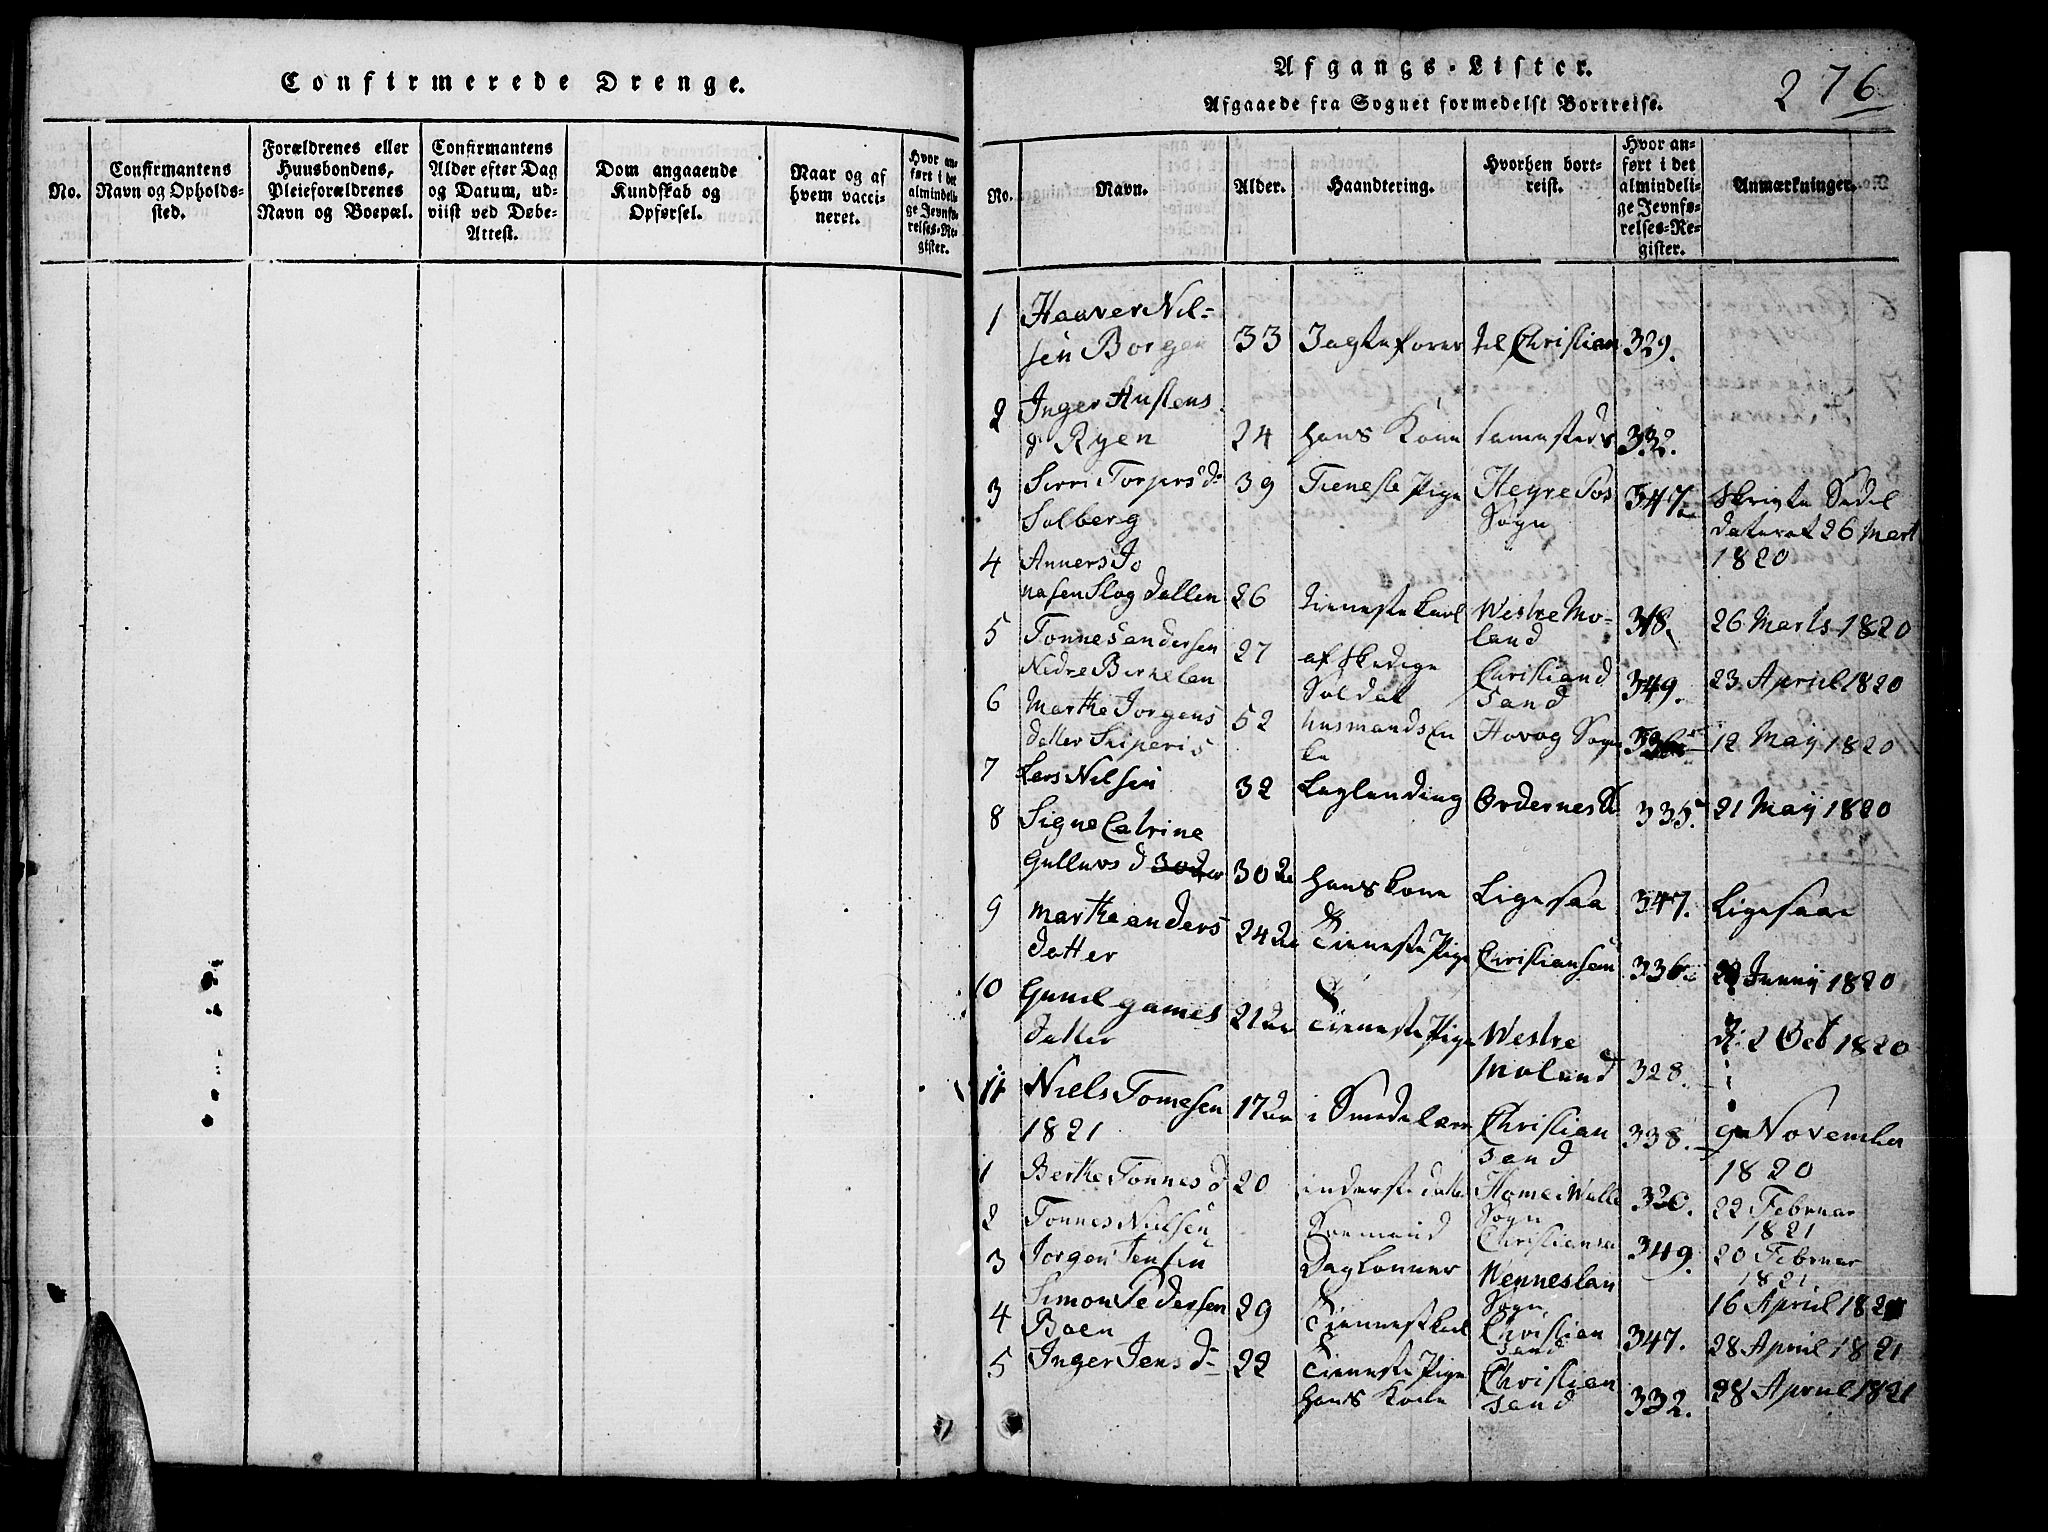 Confirmerede Drenge.
No.
Confirmantens
Navn og Opholds-
sted.
Forældrenes eller
Huusbondens,
Pleieforældrenes
Navn og Boepæl.
Confirmantens
Alder efter Dag
og Datum, ud-
viist ved Døbe-
Attest.
Dom angaaende
Kundskab og
Opførsel.
Naar og af
hvem vacci-
neret.
Hvor an-
ført i det
almindeli-
ge Jevnfø-
relses-Re-
gister.
Afgangs-Lister.
276
Afgaaede fra Sognet formedelst Bortreise.
No.
Navn.
Alder.
Haandtering.
Hvorhen bort-
reist.
Hvor an-
ført i det
almindeli-
ge Jevnfø-
relses-Re-
gister.
Anmærkninger.
1 Haaver Nil-
sen Borgen 33 Jagteforer til Christian 329.
2 Inger Austens
d Ryen 24 hans Kone sammesteds 332.
3 Sirri Torjers d 39 Tieneste Pige
Solberg Sogn 347 Skrivte Sedel
dateret 26 Mart
1820
4 Anners Jo
nasen Slogdallen 26 tieneste karl Westre Mo-
land 318. 26 Marts 1820
5 Tonnes andersen 27 afskedige Christiand
Nedre Birkelan Soldat Sand 349. 23 April 1820
6 Marthe Jorgens 52 husmands En
datter ke Hovog Sogn 12 May 1820
7 Lars Nilsen 32 335. 21 May 1820
8 Signe Catrine
Gulluvs d 30 hans kone Ligesaa 347. Ligesaa
9 Marthe anders 24 Tieneste Pige Christiansan 336
datter Junij 1820
10 Gunil games 21 Tieneste Pige Westre
datter Moland 328. d: 2 Oct 1820
11 Niels Tomesen 17 i Smedelære Christian
sand 338. 9 November
1820
1821
1 Berthe Tonnes d 20 inderste datter Home i Walle
Sogn 320. 22 Februar
1821
2 Tonnes Nielsen Soemand Christiansa 349. 20 Februar
1821
3 Jorgen Jensen Daglonner Wenneslan
Sogn 16 April 1821
4 Simon Pedersen 29 Tienneste karl Christian
Boen sand 347. 28 April 1821
5 Inger Jens d 22 Tieneste Pige Christian
hans Kone sand 332. 28 April 1821